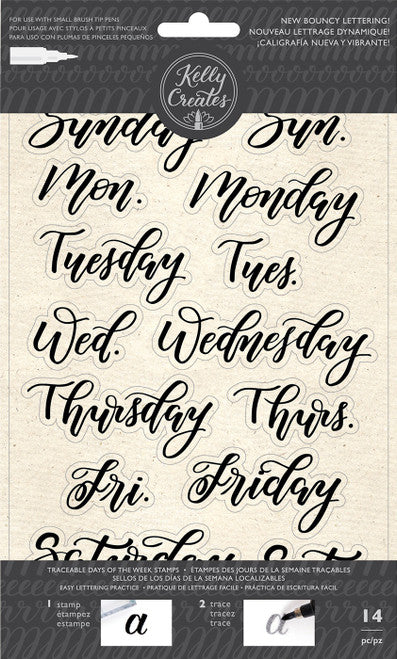 FOR USE WITH SMALL BRUSH TIP PENS
POUR USAGE AVEC STYLOS À PETITS PINCEAUX
PARA USO CON PLUMAS DE PINCELES PEQUEÑOS
NEW BOUNCY LETTERING!
NOUVEAU LETTRAGE DYNAMIQUE!
¡CALIGRAFÍA NUEVA Y VIBRANTE!
Kelly
Creates
Sunday Sun.
Mon. Monday
Tuesday Tues.
Wed. Wednesday
Thursday Thurs.
Fri. Friday
Saturday Sat.
TRACEABLE DAYS OF THE WEEK STAMPS • ÉTAMPES DES JOURS DE LA SEMAINE TRAÇABLES
SELLOS DE LOS DÍAS DE LA SEMANA LOCALIZABLES
EASY LETTERING PRACTICE • PRATIQUE DE LETTRAGE FACILE • PRÁCTICA DE ESCRITURA FACIL
1 stamp
étampez
estampe
a
2 trace
tracez
trace
a
14
pc/pz